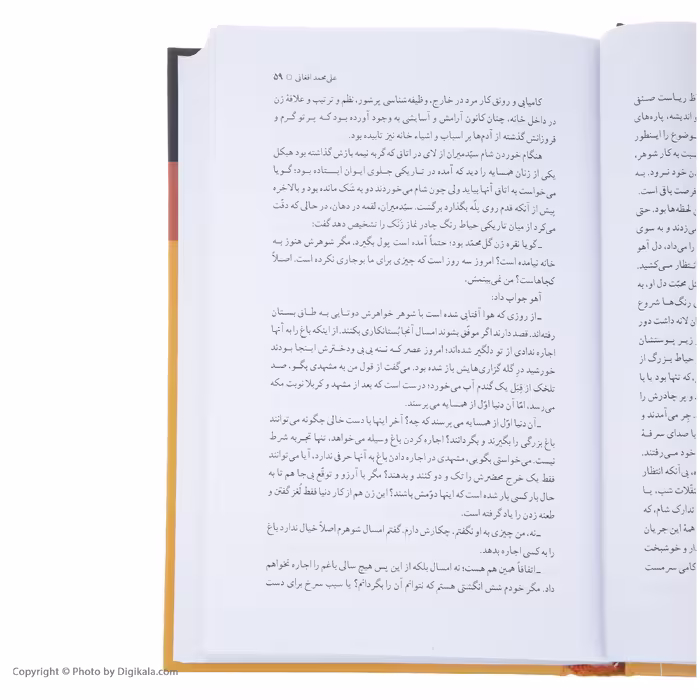 علی‌محمد افغانی □ ۵۹
کامیابی و رونق کار مرد در خارج، وظیفه‌شناسی پرشور، نظم و ترتیب و علاقهٔ زن
در داخل خانه، چنان کانون آرامش و آسایشی به وجود آورده بود که پرتو گرم و
فروزانش گذشته از آدم‌ها بر اسباب و اشیاء خانه نیز تابیده بود.
هنگام خوردن شام سیّدمیران از لای در اتاق که گربه نیمه بازش گذاشته بود هیکل
یکی از زنان همسایه را دید که آمده در تاریکی جلوی ایوان ایستاده بود؛ گویا
می‌خواست به اتاق آنها بیاید ولی چون شام می‌خوردند دو به شک مانده بود و بالاخره
پیش از آنکه قدم روی پلّه بگذارد برگشت. سیّدمیران، لقمه در دهان، در حالی که دقّت
می‌کرد از میان تاریکی حیاط رنگ چادر نماز زنک را تشخیص دهد گفت:
ـ گویا نقره زن گل‌محمّد بود؛ حتماً آمده است پول بگیرد. مگر شوهرش هنوز به
خانه نیامده است؟ امروز سه روز است که چیزی برای ما بوجاری نکرده است. اصلاً
کجاهاست؟ من نمی‌بینمش.
آهو جواب داد:
ـ از روزی که هوا آفتابی شده است با شوهر خواهرش دوتایی به طاق بستان
رفته‌اند. قصد دارند اگر موفّق بشوند امسال آنجا بُستانکاری بکنند. از اینکه باغ را به آنها
اجاره ندادی از تو دلگیر شده‌اند؛ امروز عصر که ننه بی‌بی و دخترش اینجا بودند
خورشید در گله گزاری‌هایش باز شده بود. می‌گفت از قول من به مشهدی بگو، صد
تلخک از قِبَل یک گندم آب می‌خورد؛ درست است که بعد از مشهد و کربلا نوبت مکه
می‌رسد، امّا آن دنیا اوّل از همسایه می‌پرسند.
ـ آن دنیا اوّل از همسایه می‌پرسند که چه؟ آخر اینها با دست خالی چگونه می‌توانند
باغ بزرگی را بگیرند و بگردانند؟ اجاره کردن باغ وسیله می‌خواهد، تنها تجربه شرط
نیست. می‌خواستی بگویی، مشهدی در اجاره دادن باغ به آنها حرفی ندارد، آیا می‌توانند
فقط یک خرج مختصرش را تک و دو کنند و بدهند؟ مگر با آرزو و توقّع بی‌جا هم تا به
حال بار کسی بار شده است که اینها دوّمش باشند؟ این زن هم از کار دنیا فقط لُغز گفتن و
طعنه زدن را یاد گرفته است.
ـ نه، من چیزی به او نگفتم، چکارش دارم. گفتم امسال شوهرم اصلاً خیال ندارد باغ
را به کسی اجاره بدهد.
ـ اتفاقاً همین هم هست؛ نه امسال بلکه از این پس هیچ سالی باغم را اجاره نخواهم
داد. مگر خودم شش انگشتی هستم که نتوانم آن را بگردانم؟ یا سیب سرخ برای دست
ریاست
و اندیشه، پاره‌های
به کار شوهر،
خود نرود. به
فرصت باقی است.
لحظه‌ها بود. حتی
می‌زدند و به سوی
را می‌داد، دل آهو
انتظار می‌کشید.
محبّت دل او، به
رنگ‌ها شروع
لانه داشت دور
زیر پوستشان
حیاط بزرگ از
که تنها بود با پا
و پر چادرش را
می‌آمدند و
با صدای سرفهٔ
خود می‌رفتند.
بی‌آنکه انتظار
شب، با
تدارک شام، که
همهٔ این جریان
و خوشبخت
کامی سرمست
Copyright © Photo by Digikala.com